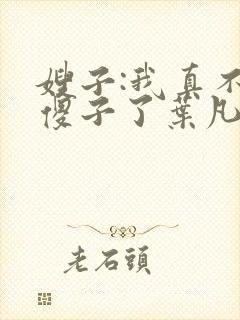 嫂子:我真不
傻子了葉凡
老石頭